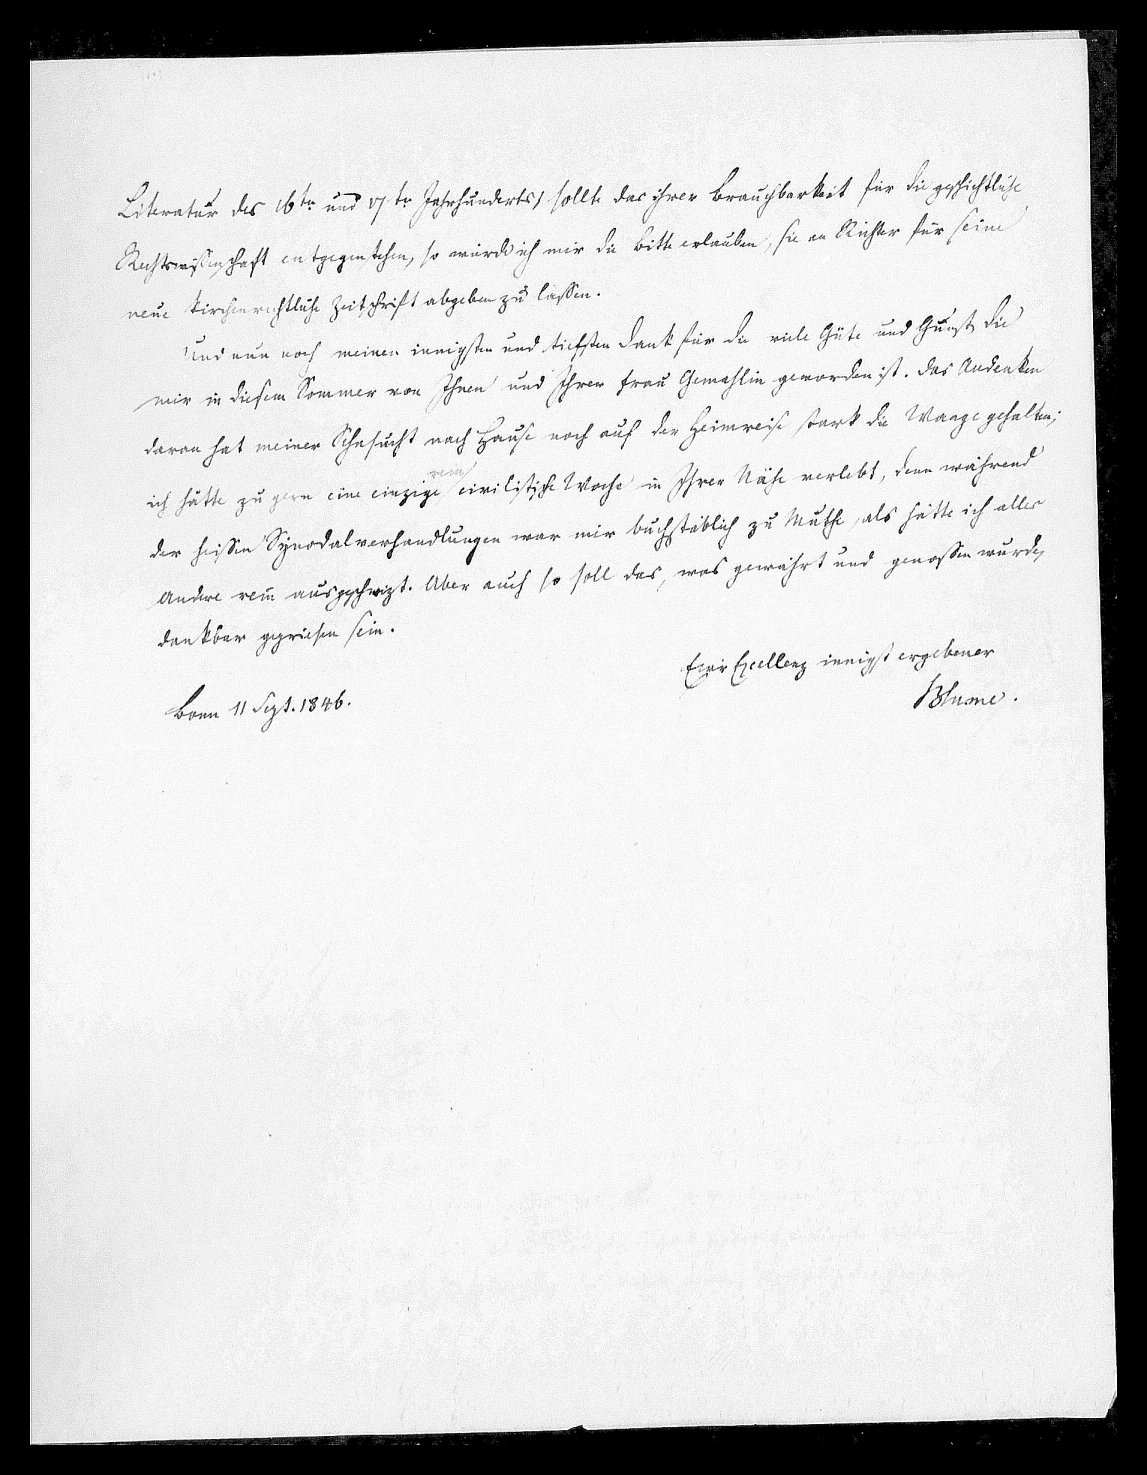 Literatur des 16ten und 17ten Jahrhunderts) sollte das ihrer Brauchbarkeit für die geschichtliche
Rechtswissenschaft entgegenstehen, so würde ich mir die Bitte erlauben, sie an Richter für seine
neue kirchenrechtliche Zeitschrift abgeben zu lassen.
Und nun noch meinen innigsten und tiefsten Dank für die viele Güte und Gunst, die
mir in diesem Sommer von Ihnen und Ihrer Frau Gemahlin geworden ist. Das Andenken
daran hat meiner Sehnsucht nach Hause noch auf der Heimreise stark die Waage gehalten;
ich hätte zu gern eine einzige rein civilistische Woche in Ihrer Nähe verlebt, denn während
der heissen Synodalverhandlungen war mir buchstäblich zu Muthe, als hätte ich alles
Andere rein ausgeschwizt. Aber auch so soll das, was gewährt und genossen wurde,
dankbar gepriesen sein.
Ewr Excellenz innigst ergebener
Blume.
Bonn 11 Sept. 1846.